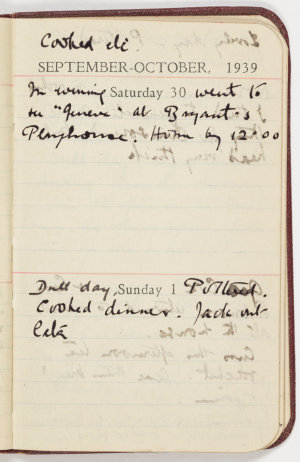 Cooked etc.
SEPTEMBER-OCTOBER, 1939
In evening Saturday 30 went to
see "Geneva" at Bryant's
Playhouse. Home by 12.00
Dull day, Sunday 1 Pottered.
Cooked dinner. Jack out
late